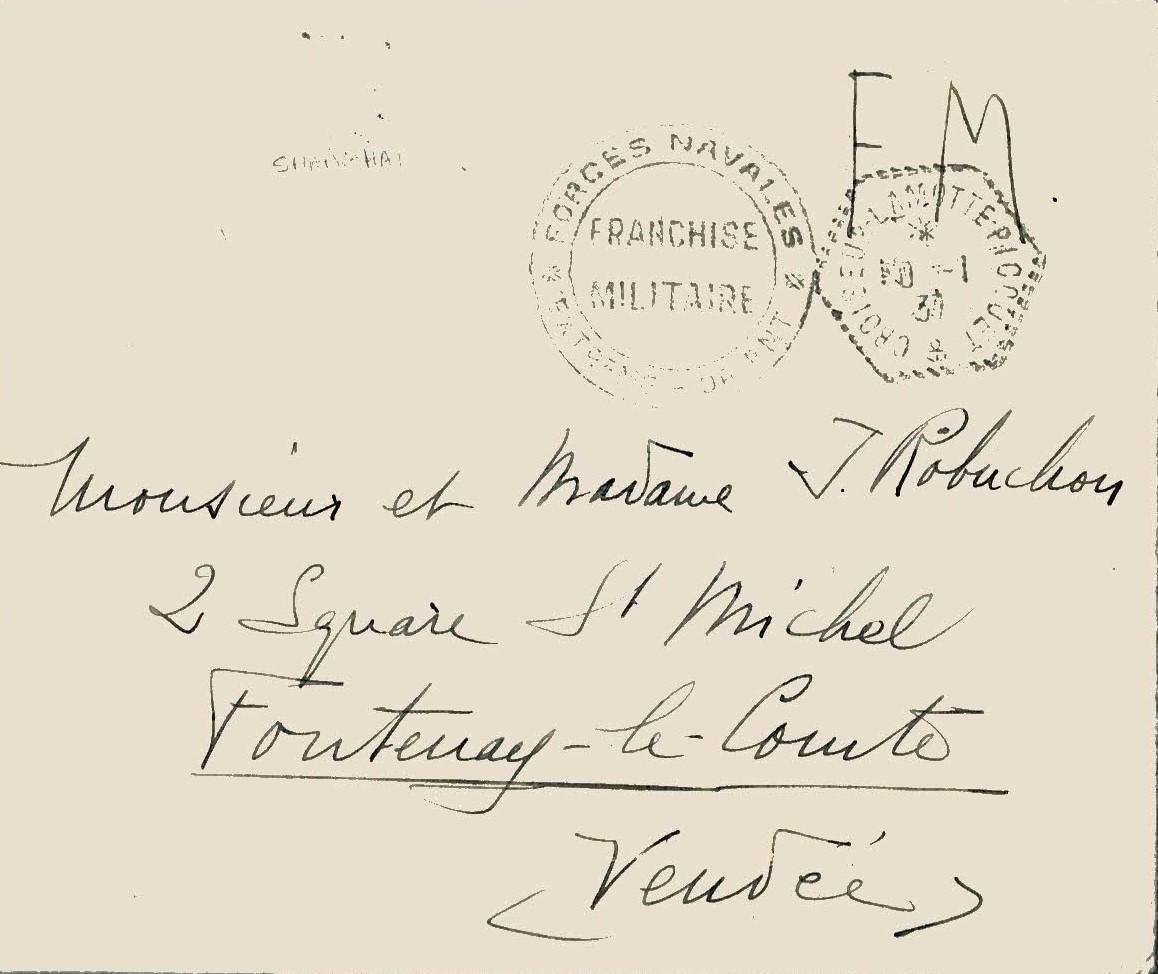 SHANGHAI
F M
FORCES NAVALES
FRANCHISE
MILITAIRE
CROISEUR-LAMOTTE-PICQUET
10 -1
Monsieur et Madame J. Robuchon
2 Square St Michel
Fontenay-le-Comte
(Vendée)